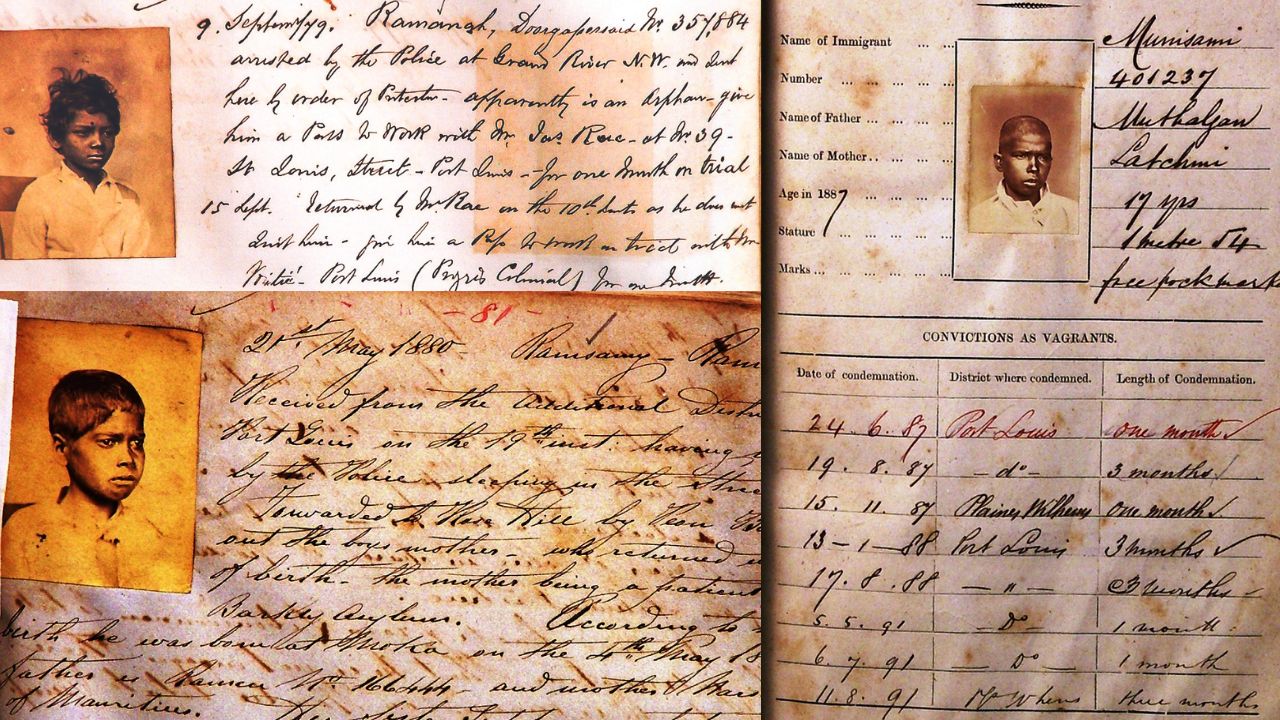 9. Septem/79. Ramangh, Doorgapersaid No. 357,884
arrested by the Police at Grand River N.W. and sent
here by order of Protector - apparently is an Orphan - give
him a Pass to Work with Mr. Jas Rae - at No. 39 -
St Louis, Street - Port Louis - for one Month on trial
15 Sept. Returned by Mr. Rae on the 10th as he does not
suit him - give him a Pass to work on trial with Mr
Port Louis (Colonial) for one month.
- 81 -
21st May 1880 - Ramsamy - Ram
Received from the Additional Distr
Port Louis on the 19th inst: having
by the Police sleeping in the stree
Forwarded to Rose Hill by
out the boys mother - who returned
of birth - the mother being a patient
Barkly Asylum. According to
birth he was born at Moka on the 4th May 18
father is Ramen No. 166444 - and mother
of Mauritius.
Name of Immigrant ... ... Munisami
Number ... ... ... ... 401237
Name of Father ... ... ... Muthalgan
Name of Mother.. ... ... ... Latchmi
Age in 1887 ... ... ... 17 yrs
Stature ... ... ... ... 1 metre 54
Marks ... ... ... ... few pock marks
CONVICTIONS AS VAGRANTS.
Date of condemnation. District where condemned. Length of Condemnation.
24. 6. 87 Port Louis one month
19. 8. 87 - do - 3 months
15. 11. 87 Plaines Wilhems one month
13 - 1 - 88 Port Louis 3 months
17. 8. 88 - " - 3 months
5. 5. 91 - Do - 1 month
6. 7. 91 - Do - 1 month
11. 8. 91 three months